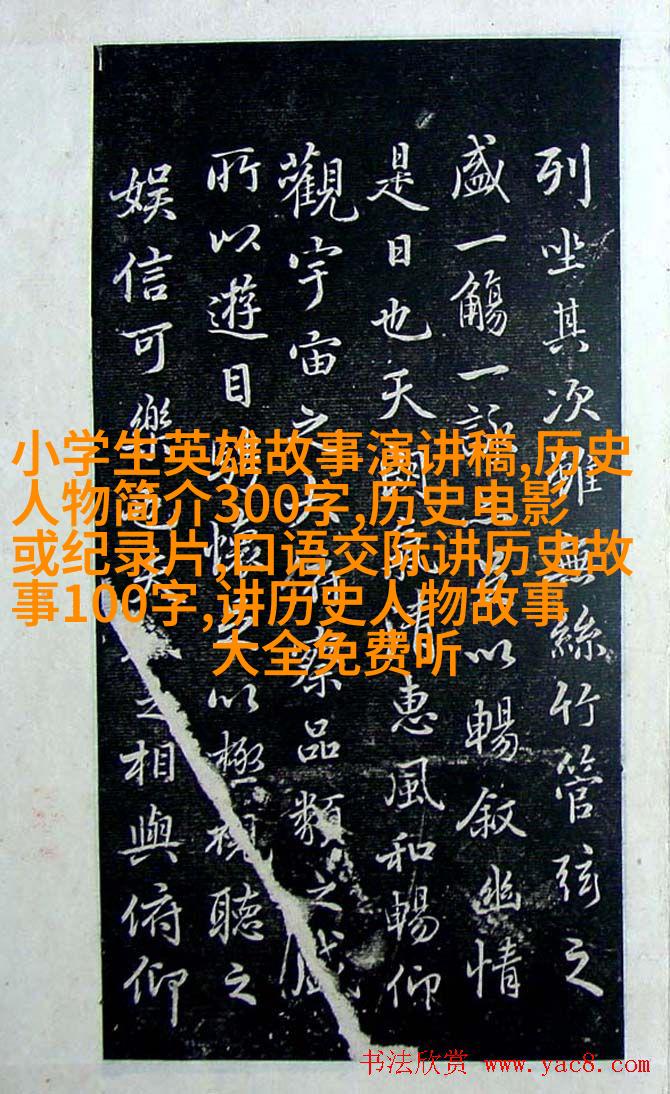 列坐其次雖無絲竹管弦之
盛一觴一詠足以暢叙幽情
是日也天朗氣清惠風和暢仰
觀宇宙之大俯察品類之盛
所以遊目騁懷足以極視聽之
娱信可樂也夫人之相與俯仰
小学生英雄故事演讲稿,历史
人物简介300字,历史电影
或纪录片,口语交际讲历史故
事100字,讲历史人物故事
大全免费听
书法欣赏 www.yac8.com